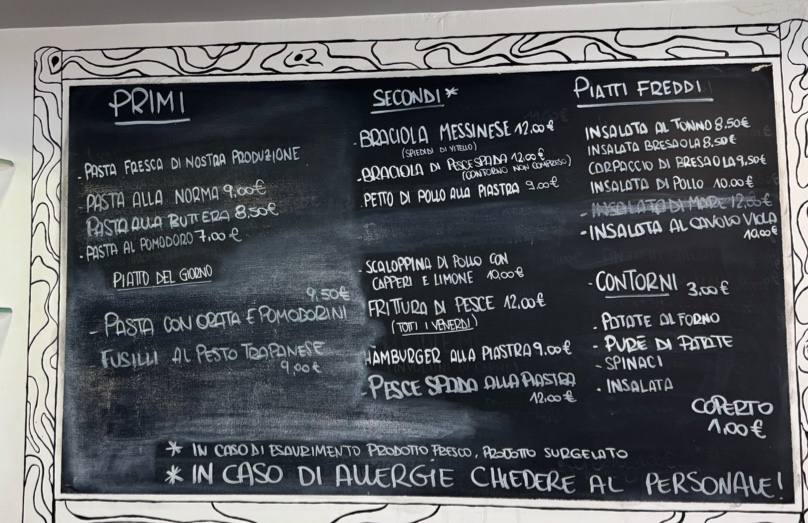 PRIMI
- PASTA FRESCA DI NOSTRA PRODUZIONE
- PASTA ALLA NORMA 9,00€
PASTA ALLA BUTTERA 8,50€
- PASTA AL POMODORO 7,00€
PIATTO DEL GIORNO
9,50€
- PASTA CON ORATA E POMODORINI
FUSILLI AL PESTO TRAPANESE
9,00€
SECONDI*
- BRACIOLA MESSINESE 12,00€
(SPIEDINI DI VITELLO)
- BRACIOLA DI PESCE SPADA 12,00€
(CONTORNO NON COMPRESO)
PETTO DI POLLO ALLA PIASTRA 9,00€
- SCALOPPINA DI POLLO CON
CAPPERI E LIMONE 10,00€
FRITTURA DI PESCE 12,00€
(TUTTI I VENERDI)
HAMBURGER ALLA PIASTRA 9,00€
- PESCE SPADA ALLA PIASTRA
12,00€
PIATTI FREDDI
INSALATA AL TONNO 8,50€
INSALATA BRESAOLA 8,50€
CARPACCIO DI BRESAOLA 9,50€
INSALATA DI POLLO 10,00€
- INSALATA DI MARE 12,00€
- INSALATA AL CAVOLO VIOLA
10,00€
- CONTORNI 3,00€
- PATATE AL FORNO
- PURÈ DI PATATE
- SPINACI
- INSALATA
COPERTO
1,00€
* IN CASO DI ESAURIMENTO PRODOTTO FRESCO, PRODOTTO SURGELATO
* IN CASO DI ALLERGIE CHIEDERE AL PERSONALE!